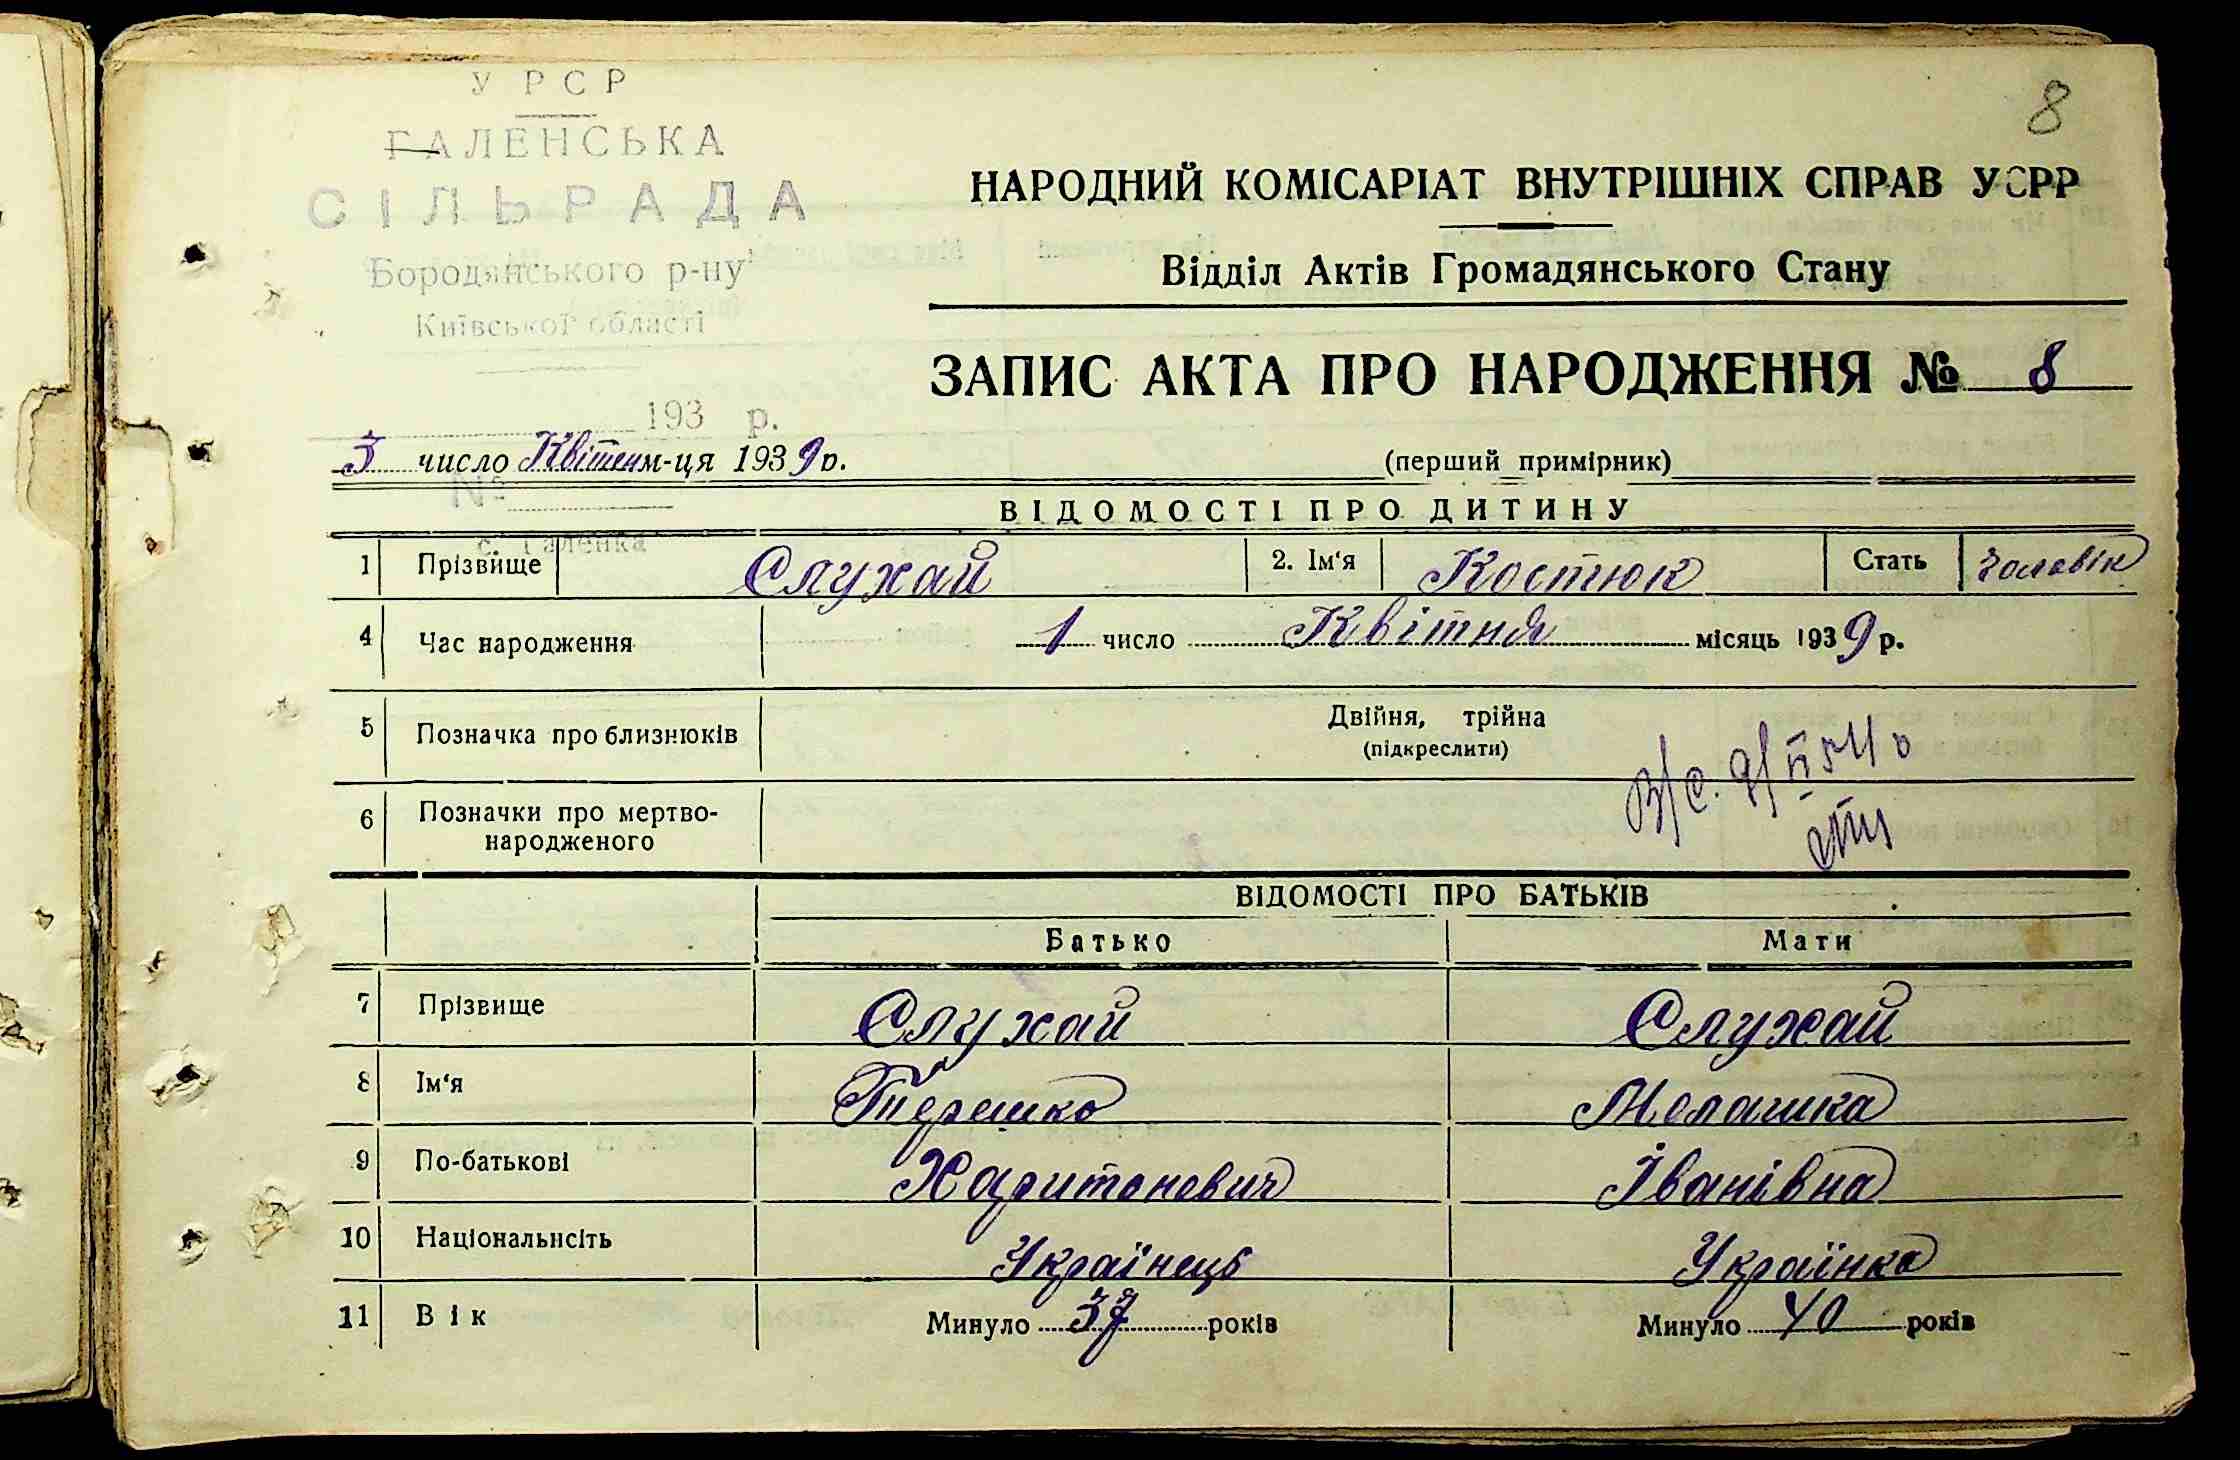 8
У Р С Р
ГАЛЕНСЬКА
СІЛЬРАДА
Бородянського р-ну
Київської області
193 р.
№
с. Галенка
НАРОДНИЙ КОМІСАРІАТ ВНУТРІШНІХ СПРАВ УСРР
Відділ Актів Громадянського Стану
ЗАПИС АКТА ПРО НАРОДЖЕННЯ № 8
3 число Квітень м-ця 1939 р.
(перший примірник)
ВІДОМОСТІ ПРО ДИТИНУ
1 Прізвище Слухай 2. Ім'я Костюк Стать Чоловік
4 Час народження 1 число Квітня місяць 1939 р.
5 Позначка про близнюків Двійня, трійна
(підкреслити)
6 Позначки про мертво-
народженого
ВІДОМОСТІ ПРО БАТЬКІВ
Батько Мати
7 Прізвище Слухай Слухай
8 Ім'я Терешко Мелашка
9 По-батькові Харитоневич Іванівна
10 Національнсіть Українець Українка
11 Вік Минуло 37 років Минуло 40 років